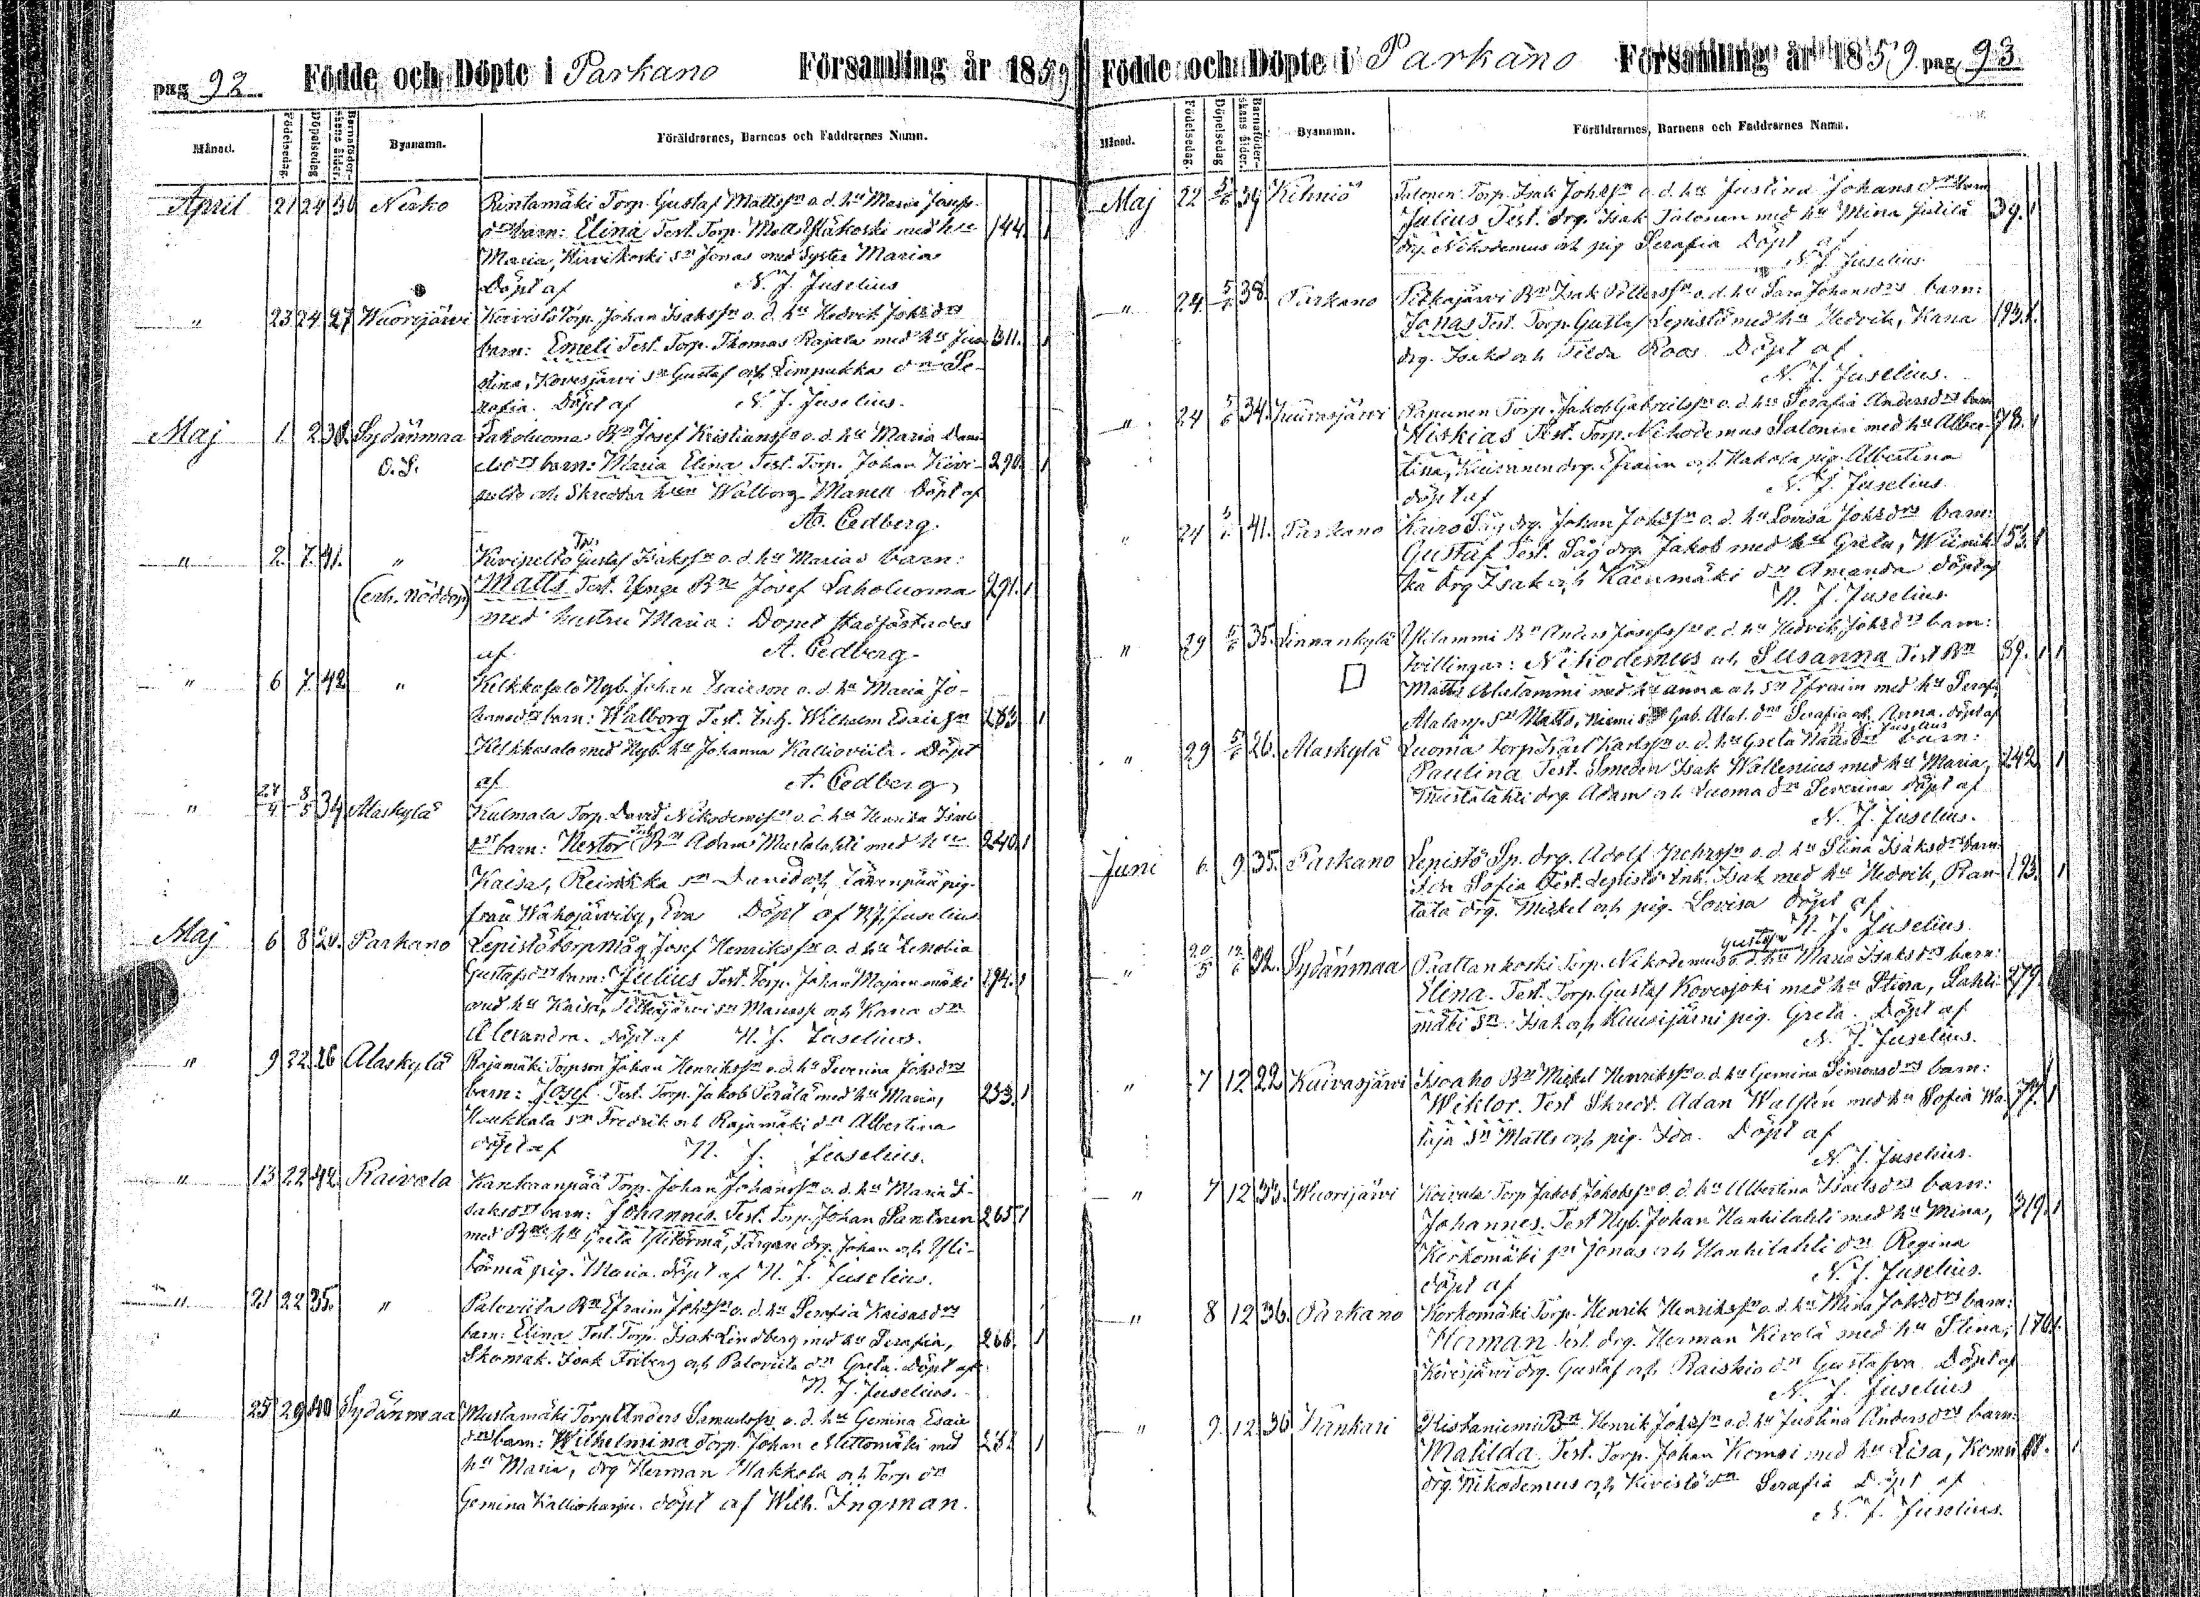 pag 92. Födde och Döpte i Parkano Församling år 1859
Månad. Födelsedag. Döpelsedag Barnaföderskans ålder. Bysnamn. Föräldrarnes, Barnens och Faddrarnes Namn.
April 21 24 30 Nerko Rintamäki Torp. Gustaf Mattsson o.d. hu Maria Josefs-
drs barn: Elina Test. Torp. Matts Yläkoski med hu 144. 1
Maria, Kirvikoski sn Jonas med Syster Maria
Döpt af N. J. Juselius
" 23 24 27 Wuorijärvi Koivisto Torp. Johan Isakssn o.d. hu Hedvik Johsdrs
barn: Emeli Test. Torp. Thomas Rajala med hu Jus- 311. 1
tina, Kovesjärvi sn Gustaf och Limpukka dn Se-
rafia. Döpt af N. J. Juselius.
Maj 1 2 38. Sydänmaa Laholuoma Bn Josef Kristianssn o.d. hu Maria Dani-
O.S. elsdrs barn: Maria Elina Test. Torp. Johan Kivi- 290. 1
pelto och Skreddar hun Walborg Manell Döpt af
A. Cedberg.
" 2. 7. 41. " Kivipelto Tp. Gustaf Isakssn o.d. hu Marias barn:
(erh. nöddop) Matts Test. Ynge Bn Josef Laholuoma 291. 1
med hustru Maria: Dopet stadfästades
af A. Cedberg
" 6 7. 42 " Kelkkasalo Nyb. Johan Isaicson o.d. hu Maria Jo-
hansdrs barn: Walborg Test. Inh. Wilhelm Esaiesn 283. 1
Kelkkasalo med Nyb. hu Johanna Kallioviita. Döpt
af A. Cedberg
" 24/4 8/5 34 Alaskylä Kulmala Torp. David Nikodemissn o.d. hu Henrika Isaks
drs barn: Nestor Test. Bn Adam Mustalahti med hu 240. 1
Kaisa, Reinikka sn David och Järvenpää pig.
från Wahojärviby, Eva Döpt af N. J. Juselius
Maj 6 8 24. Parkano Lepistö torpmåg Josef Henrikssn o.d. hu Zenobia
Gustafsdrs barn: Julius Test. Torp. Johan Majaremäki 194. 1
med hu Kaisa, Pitkäjärvi sn Manasse och Kana dn
Alexandra. döpt af N. J. Juselius.
" 9 22. 26 Alaskylä Rajamäki Torpson Johan Henrikssn o.d. hu Severina Johsdrs
barn: Josef. Test. Torp. Jakob Perälä med hu Maria, 253. 1
Houkkala sn Fredrik och Rajamäki dn Albertina
döpt af N. J. Juselius.
" 13 22 42. Raivala Kankaanpää Torp. Johan Johanssn o.d. hu Maria I-
saksdrs barn: Johannes. Test. Torp. Johan Santanen 265 1
med Bns hu Greta Ylitörmä, Färgare drg. Johan och Yli-
törmä pig. Maria. döpt af N. J. Juselius.
" 21 22 35. " Paloviita Bn Efraim Johssn o.d. hu Serafia Kaisasdrs
barn: Elina Test. Torp. Isak Lindberg med hu Serafia, 266. 1
Skomak. Isak Friberg och Paloviita dn Greta. Döpt af
N. J. Juselius.
" 25 29 40 Sydänmaa Mustamäki Torp Anders Samuelssn o.d. hu Gemina Esaie
drs barn: Wilhelmina Torp. Johan Mettomäki med 1
hu Maria, drg Herman Hakkola och Torp. dn
Gemina Kallioharju. döpt af Wilh. Ingman.
Födde och Döpte i Parkano Församling år 1859. pag 93.
Månad. Födelsedag. Döpelsedag Barnaföderskans ålder. Bysnamn. Föräldrarnes, Barnens och Faddrarnes Namn.
Maj 22 5/6 39 Kihniö Salonen Torp. Isak Johssn o.d. hu Justina Johansdrs barn
Julius Test. drg. Isak Salonen med hu Mina Julilä 39. 1
drg. Nikodemus och pig Serafia Döpt af
N. J. Juselius
" 24 5/6 38. Parkano Pitkäjärvi Bn Isak Pettersson o.d. hu Sara Johansdrs barn:
Jonas Test. Torp. Gustaf Lepistö med hu Hedvik, Kana 193. 1
drg. Isak och Tilda Roos. Döpt af
N. J. Juselius.
" 24 5/6 34. Kuivasjärvi Papunen Torp. Jakob Gabrielssn o.d. hu Serafia Andersdrs barn
Hiskias Test. Torp. Nikodemus Salonen med hu Alber- 78. 1
tina, Kuivanen drg. Efraim och Hakola pig Albertina
döpt af N. J. Juselius.
" 24 5/6 41. Parkano Kairo Såg drg. Johan Johssn o.d. hu Lovisa Johsdrs barn:
Gustaf Test. Såg drg. Jakob med hu Greta, Wiinik- 153. 1
ka drg Isak och Käenmäki dn Amanda döpt af
N. J. Juselius
" 29 5/6 35. Linnankylä Ylilammi Bn Anders Josefssn o.d. hu Hedvik Johsdrs barn:
Tvillingar: Nikodemus och Susanna Test Bn 89. 1 1
Matts Alalammi med hu Anna och sn Efraim med hu Serafi,
Alalamp. sn Matts, Niemi sn Gab. Alal. dn Serafia och Anna. döpt af
N. J. Juselius
" 29 5/6 26. Alaskylä Luoma Torp Karl Karlssn o.d. hu Greta barn:
Paulina Test. Smeden Isak Wallenius med hu Maria, 242. 1
Mustalahti drg. Adam och Luoma dn Severina döpt af
N. J. Juselius.
Juni 6. 9 35. Parkano Lepistö Sp. drg. Adolf o.d. hu Stina Isaksdrs barn:
Sofia Test. Lepistö Inh. Isak med hu Hedvik, Ran- 193. 1
tala drg. Mickel och pig. Lovisa döpt af
N. J. Juselius.
" 20/5 12/6 32. Sydänmaa Paattankoski Torp. Nikodemus Gustafsn o.d. hu Maria Isaksdrs barn:
Elina. Test. Torp. Gustaf Kovesjoki med hu Stina, Lahti- 279. 1
mäki sn Isak och Kuusijärvi pig. Greta. Döpt af
N. J. Juselius.
" 7 12 22 Kuivasjärvi Isoaho Bn Mickel Henrikssn o.d. hu Gemina Simonsdrs barn:
Wiktor. Test Skredd. Adan Walsten med hu Sofia Wa- 77. 1
taja sn Matts och pig. Ida. Döpt af
N. J. Juselius.
" 7 12 33. Wuorijärvi Koivula Torp Jakob Jakobssn o.d. hu Albertina Isaksdrs barn:
Johannes. Test Nyb. Johan Hankilahti med hu Mina, 319. 1
Korkomäki sn Jonas och Hankilahti dn Regina
döpt af N. J. Juselius.
" 8 12 36. Parkano Korkomäki Torp. Henrik Henrikssn o.d. hu Mina Johsdrs barn:
Herman Test. drg. Herman Kivelä med hu Stina, 176. 1
Kovesjärvi drg. Gustaf och Raiskio dn Gustafva. Döpt af
N. J. Juselius
" 9. 12. 36 Kankari Hietaniemi Bn Henrik Johssn o.d. hu Justina Andersdrs barn:
Matilda. Test. Torp. Johan Komsi med hu Lisa, Komsi 1
drg. Nikodemus och Kivistö dn Serafia Döpt af
N. J. Juselius.